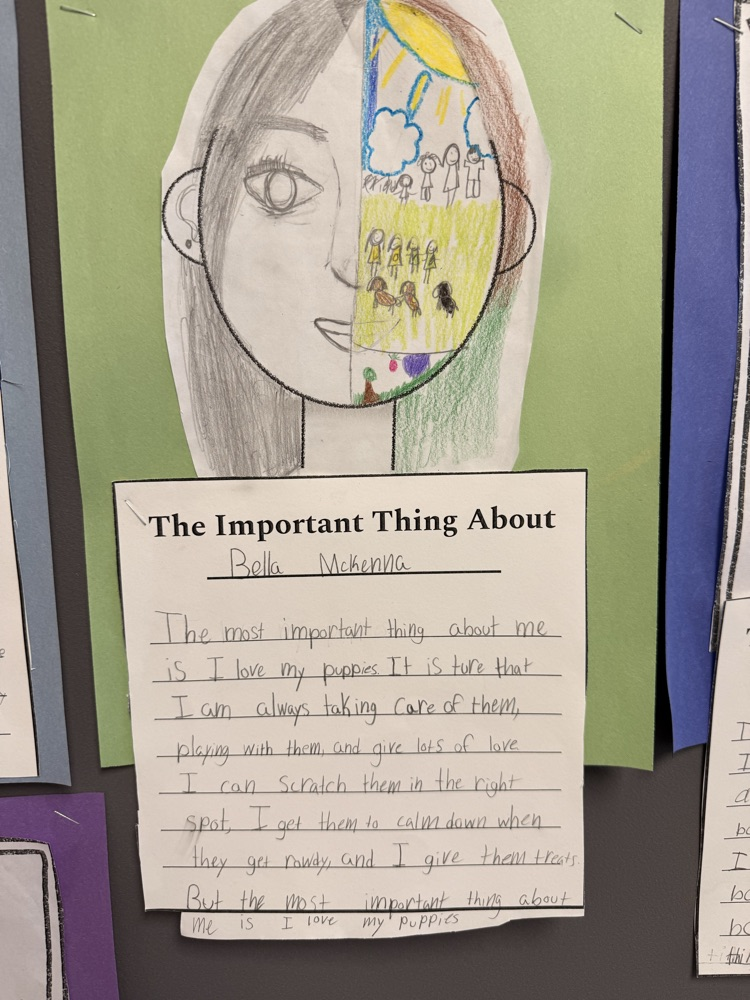 The Important Thing About
Bella McKenna
The most important thing about me
is I love my puppies. It is ture that
I am always taking care of them,
playing with them, and give lots of love
I can scratch them in the right
spot, I get them to calm down when
they get rowdy, and I give them treats.
But the most important thing about
me is I love my puppies